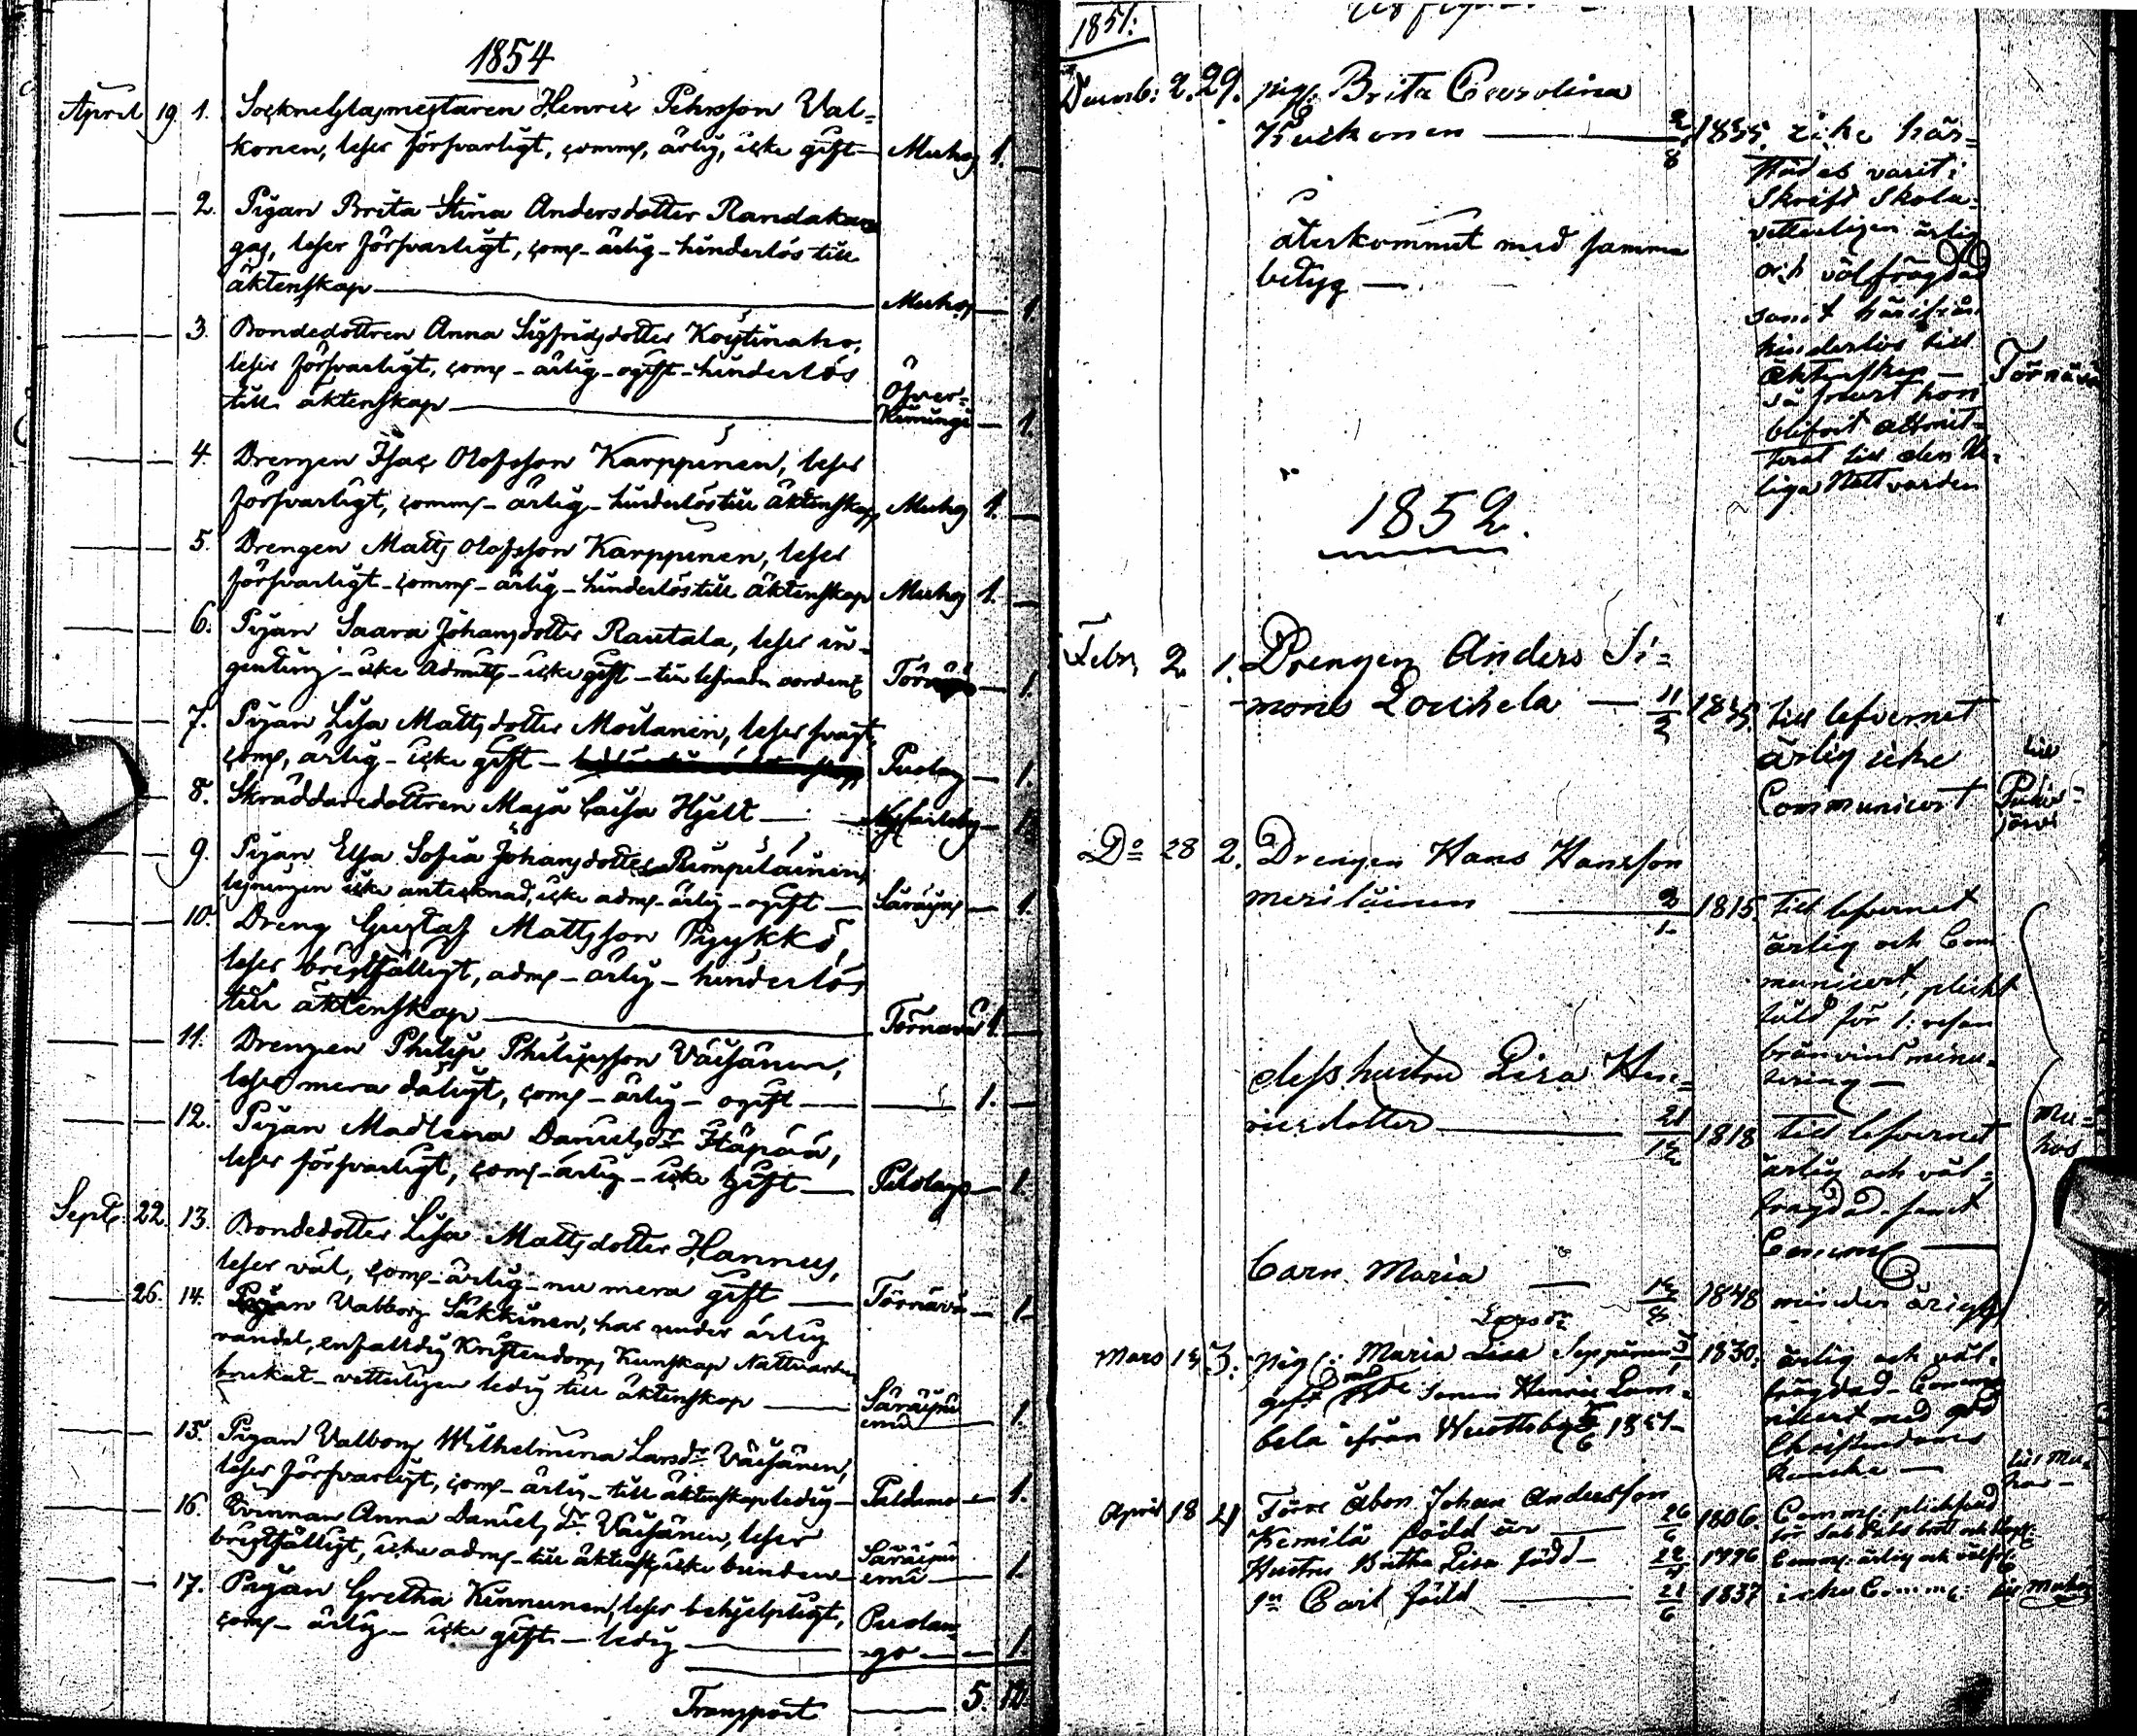 1854
April 19 1. Sockneglasmestaren Henric Pehrsson Val=
konen, leser försvarligt, comm, ärlig, icke gift Muhos 1.
2. Pigan Brita Stina Andersdotter Randakan
gas, leser försvarligt, com - ärlig - hinderlös till
äktenskap Muhos 1.
3. Bondedottren Anna Sigfridsdotter Koytinaho,
leser försvarligt, com - ärlig - ogift - hinderlös
till äktenskap Öfver=
Kiminge 1.
4. Drengen Isac Olofsson Karppinen, leser
försvarligt, comm - ärlig - hinderlös till äktenskap Muhos 1.
5. Drengen Matts Olofsson Karppinen, leser
försvarligt - comm - ärlig - hinderlös till äktenskap Muhos 1.
6. Pigan Saara Johansdotter Rautala, leser in-
genting - icke Admitt - icke gift - 1.
7. Pigan Lisa Mattsdotter Moilanen, leser svagt,
com, ärlig - icke gift - Pudas 1.
8. Skräddaredottren Maja Caisa Hjelt 1.
9. Pigan Elsa Sofia Johansdotter Rimpiläinen
läsningen icke antecknad, icke adm - ärlig - ogift Säräisn 1.
10. Dreng Gustaf Mattsson Pyykkö,
leser bristfälligt, adm - ärlig - hinderlös
till äktenskap Törnävä 1.
11. Drengen Philip Philipsson Väisänen,
leser mera dåligt, com - ärlig - ogift 1.
12. Pigan Madlena Danielsdr Itäpää,
leser försvarligt, com - ärlig - icke gift 1.
Sept. 22. 13. Bondedotter Lisa Mattsdotter Hannus,
leser väl, com - ärlig - nu mera gift Törnävä 1.
26. 14. Pigan Valborg Säkkinen, har under ärlig
vandel, enfaldig Kristendoms Kunskap Nattvarden
brukat - vetterligen ledig till äktenskap Säräisni
emi 1.
15. Pigan Valborg Wilhelmina Larsdr Väisänen,
leser försvarligt, com - ärlig - till äktenskap ledig Paldamo 1.
16. Qvinnan Anna Danielsdr Väisänen, leser
bristfälligt, icke adm - till äktensk icke bunden Säräisni
emi 1.
17. Pigan Gretha Kinnunen, leser behjelpligt,
com - ärlig - icke gift - ledig Pudas
1.
Transport 5. 12.
1851.
Decemb: 2. 29. pig. Brita Carolina
1835. icke här=
städes varit i
Skrift Skola
vetterligen ärlig
återkommit med samma
och välfrägdad
betyg
samt härifrån
hinderlös till
äktenskap
Törnävä
så snart hon
blifvit admit=
terat till den He=
liga Nattvarden
1852.
Febr 2 1. Drengen Anders Si=
mons Louhela 11 1835. till lefvernet
ärlig icke till
Communicert Puhos=
järvi
Do 28 2. Drengen Hans Hansson
Meriläinen 2 1815. till lefvernet
ärlig och Com
municert, plickt
fäld för 1: resan
bränvins minu=
tering
dess hustru Lisa Hen=
ricsdotter 21 1818 till lefvernet Mu=
hos
ärlig och väl=
frägdad samt
Comm
barn Maria 1848 minder årig
Larsdr
Mars 3. pig: Maria Seppänen 1830. ärlig och väl=
gift med sonen Henric Lam=
frägdad Commu
nicert med god
bela ifrån 1851
Christendoms
Kunska till Mu=
hos
April 18 4 Förre åbon Johan Andersson
Kemilä född är 26 6 1806. Comm: plicktfäld
Hustru Britha Lisa född 22 1796 Comm. ärlig och välfr
Carl född 21 6 1837 icke Comm: till Muhos